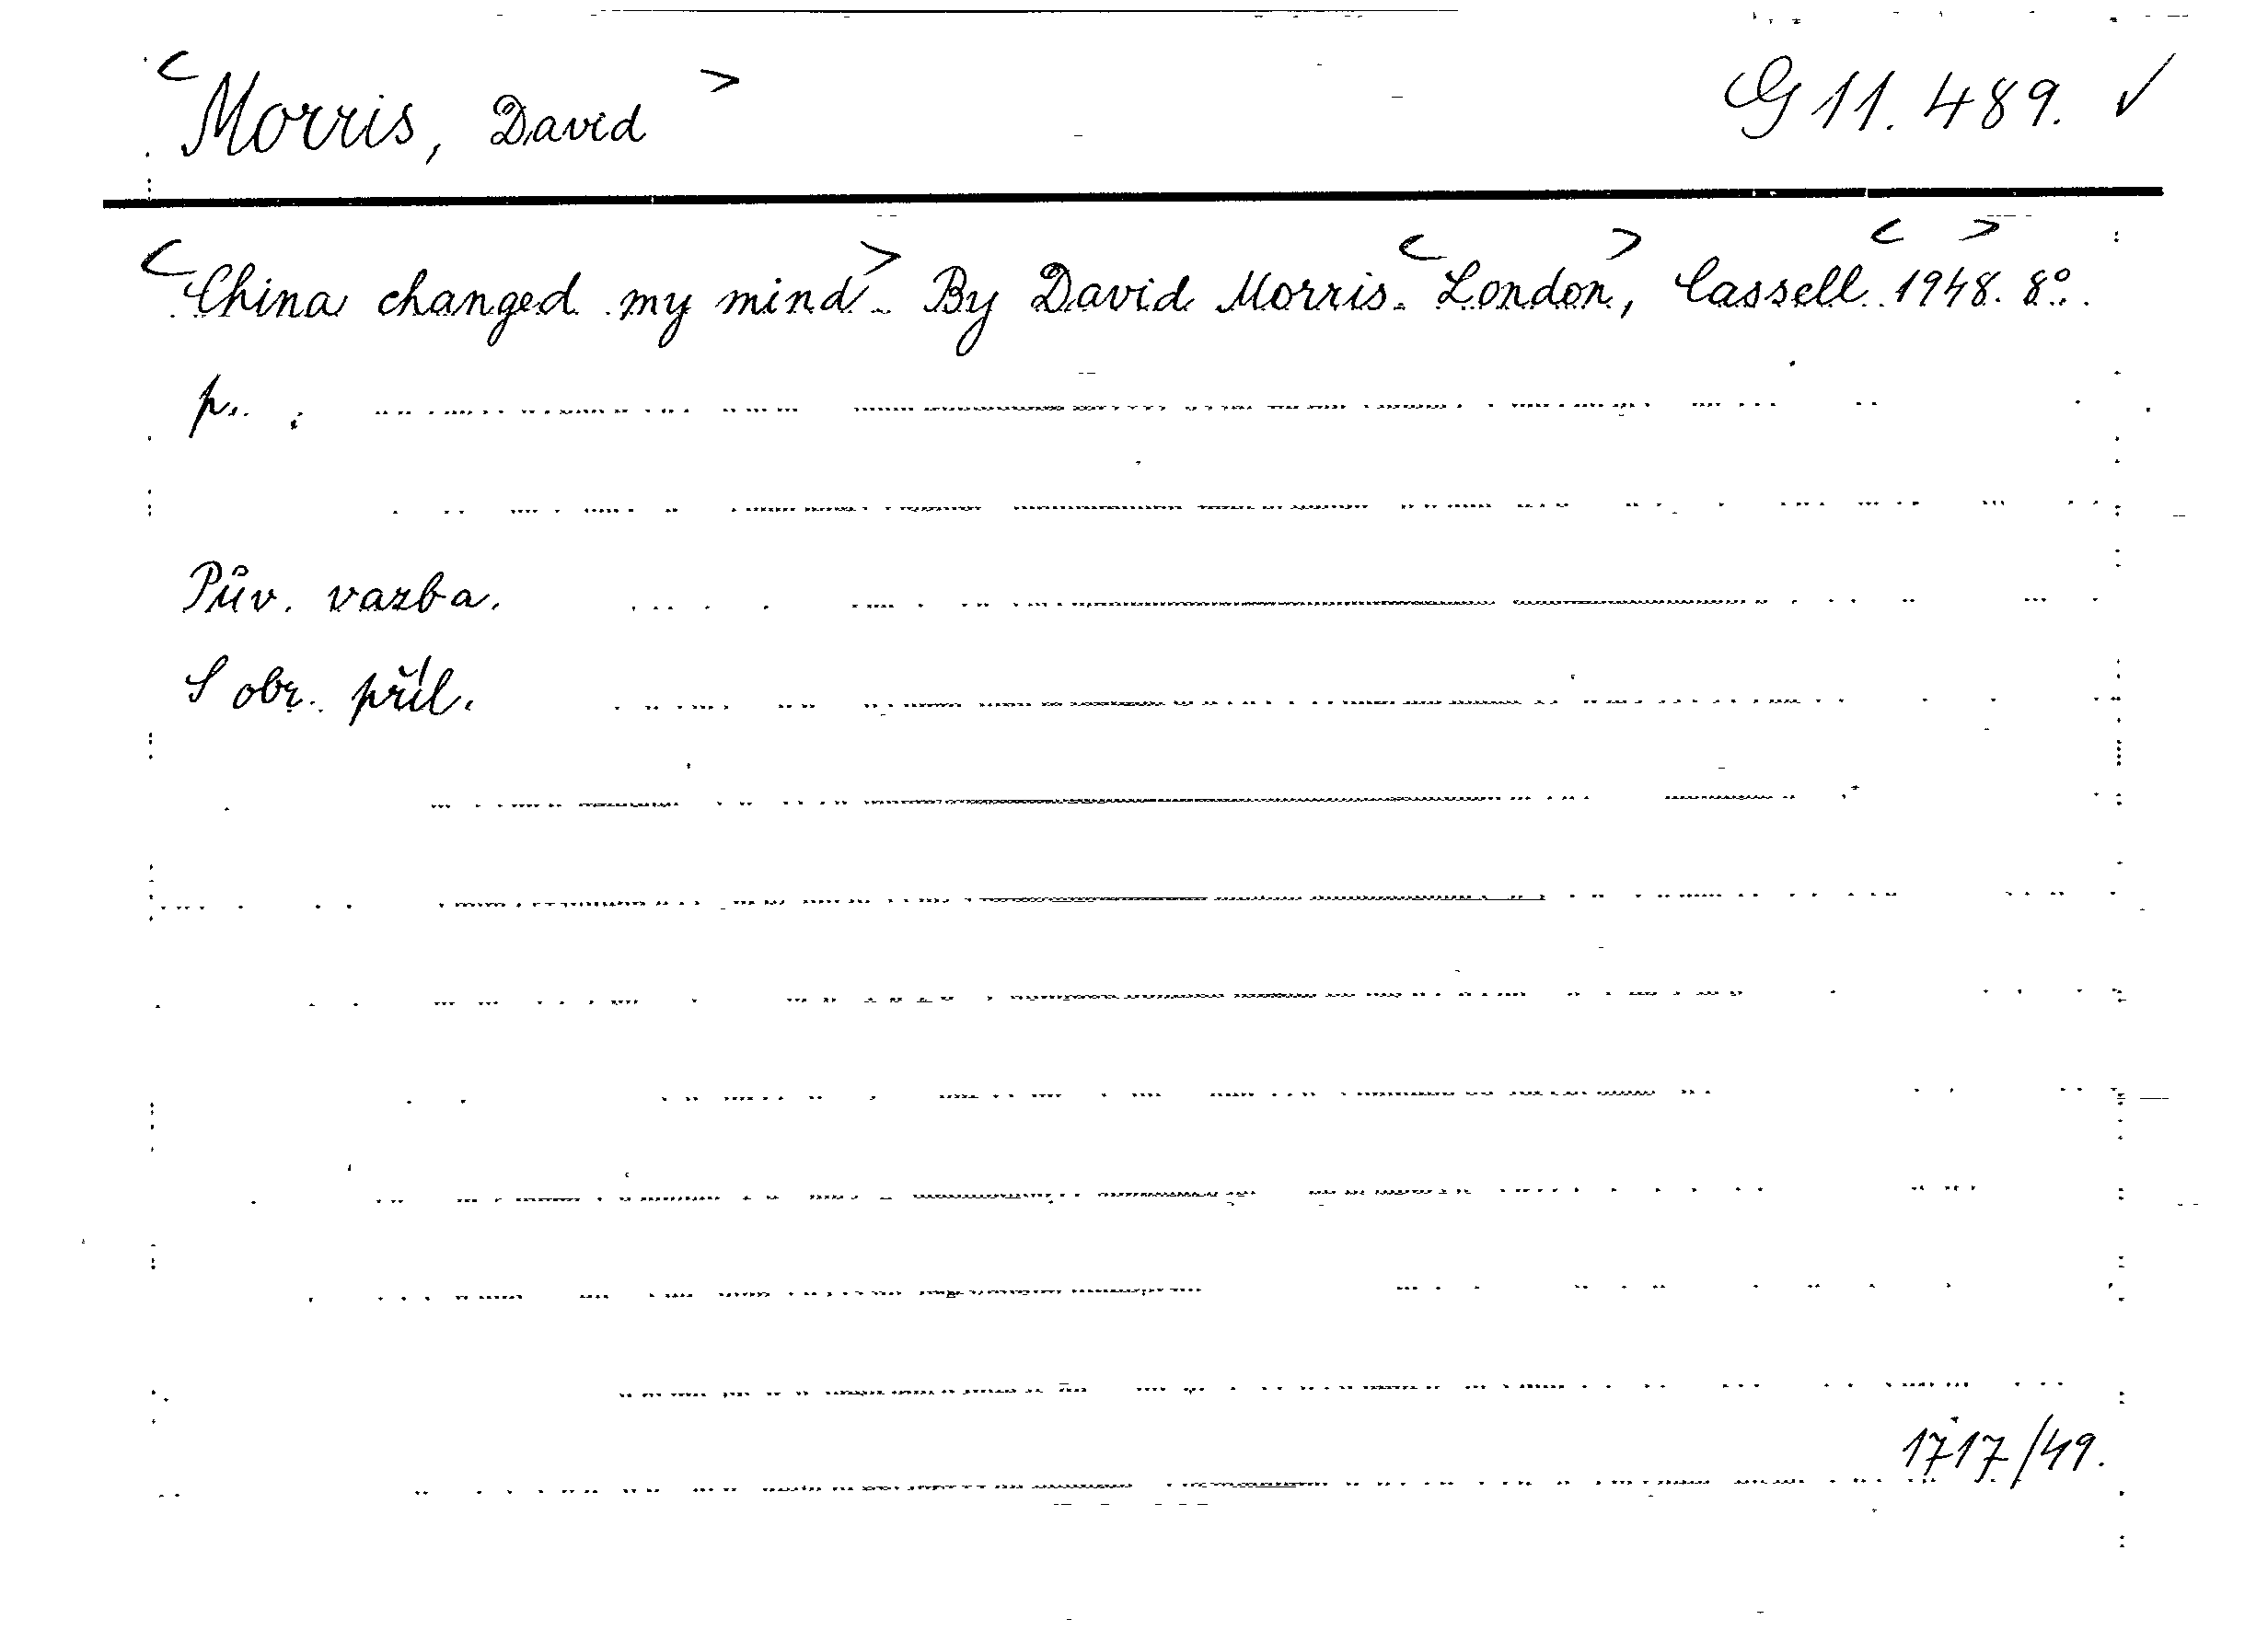 <Morris, David> G 11.489. ✓
<China changed my mind>. By David Morris. <London>, Cassell <1948>. 8°.
p. .
Pův. vazba.
S obr. příl.
1717/49.